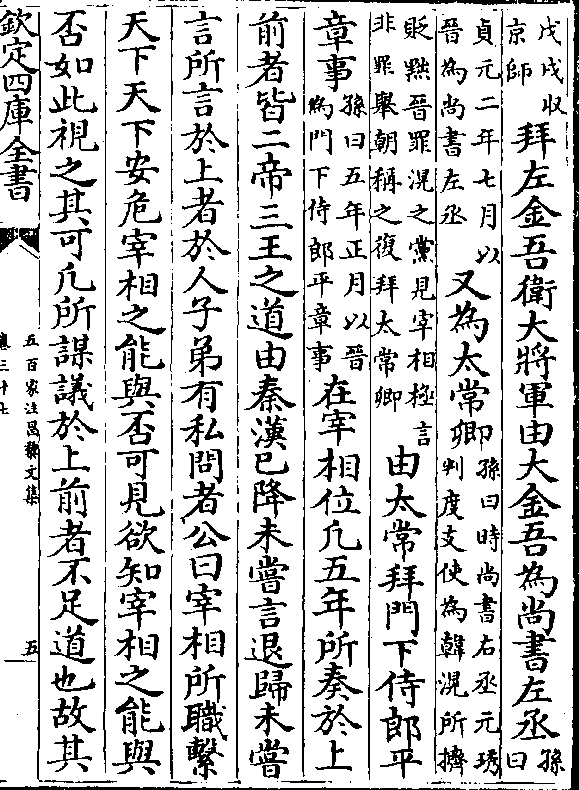 戊戌収京師拜左金吾衛大將軍由大金吾為尚書左丞孫曰
貞元二年七月以晉為尚書左丞又為太常卿孫曰時尚書右丞元琇判度支使為韓滉所擠
貶黜晉罪滉之黨見宰相極言非罪舉朝稱之復拜太常卿由太常拜門下侍郎平
章事孫曰五年正月以晉為門下侍郎平章事在宰相位凡五年所奏於上
前者皆二帝三王之道由秦漢已降未嘗言退歸未嘗
言所言於上者於人子弟有私問者公曰宰相所職繫
天下天下安危宰相之能與否可見欲知宰相之能與
否如此視之其可凡所謀議於上前者不足道也故其
欽定四庫全書
五百家注昌黎文集
卷三十七
五